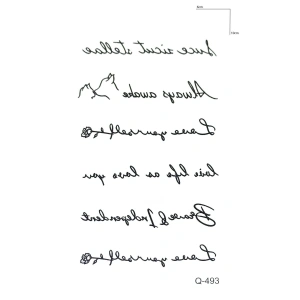 Luce sicut stellae
Always awake
Love yourself
love life as love you
Brave & Independent
Love yourself
Q-493